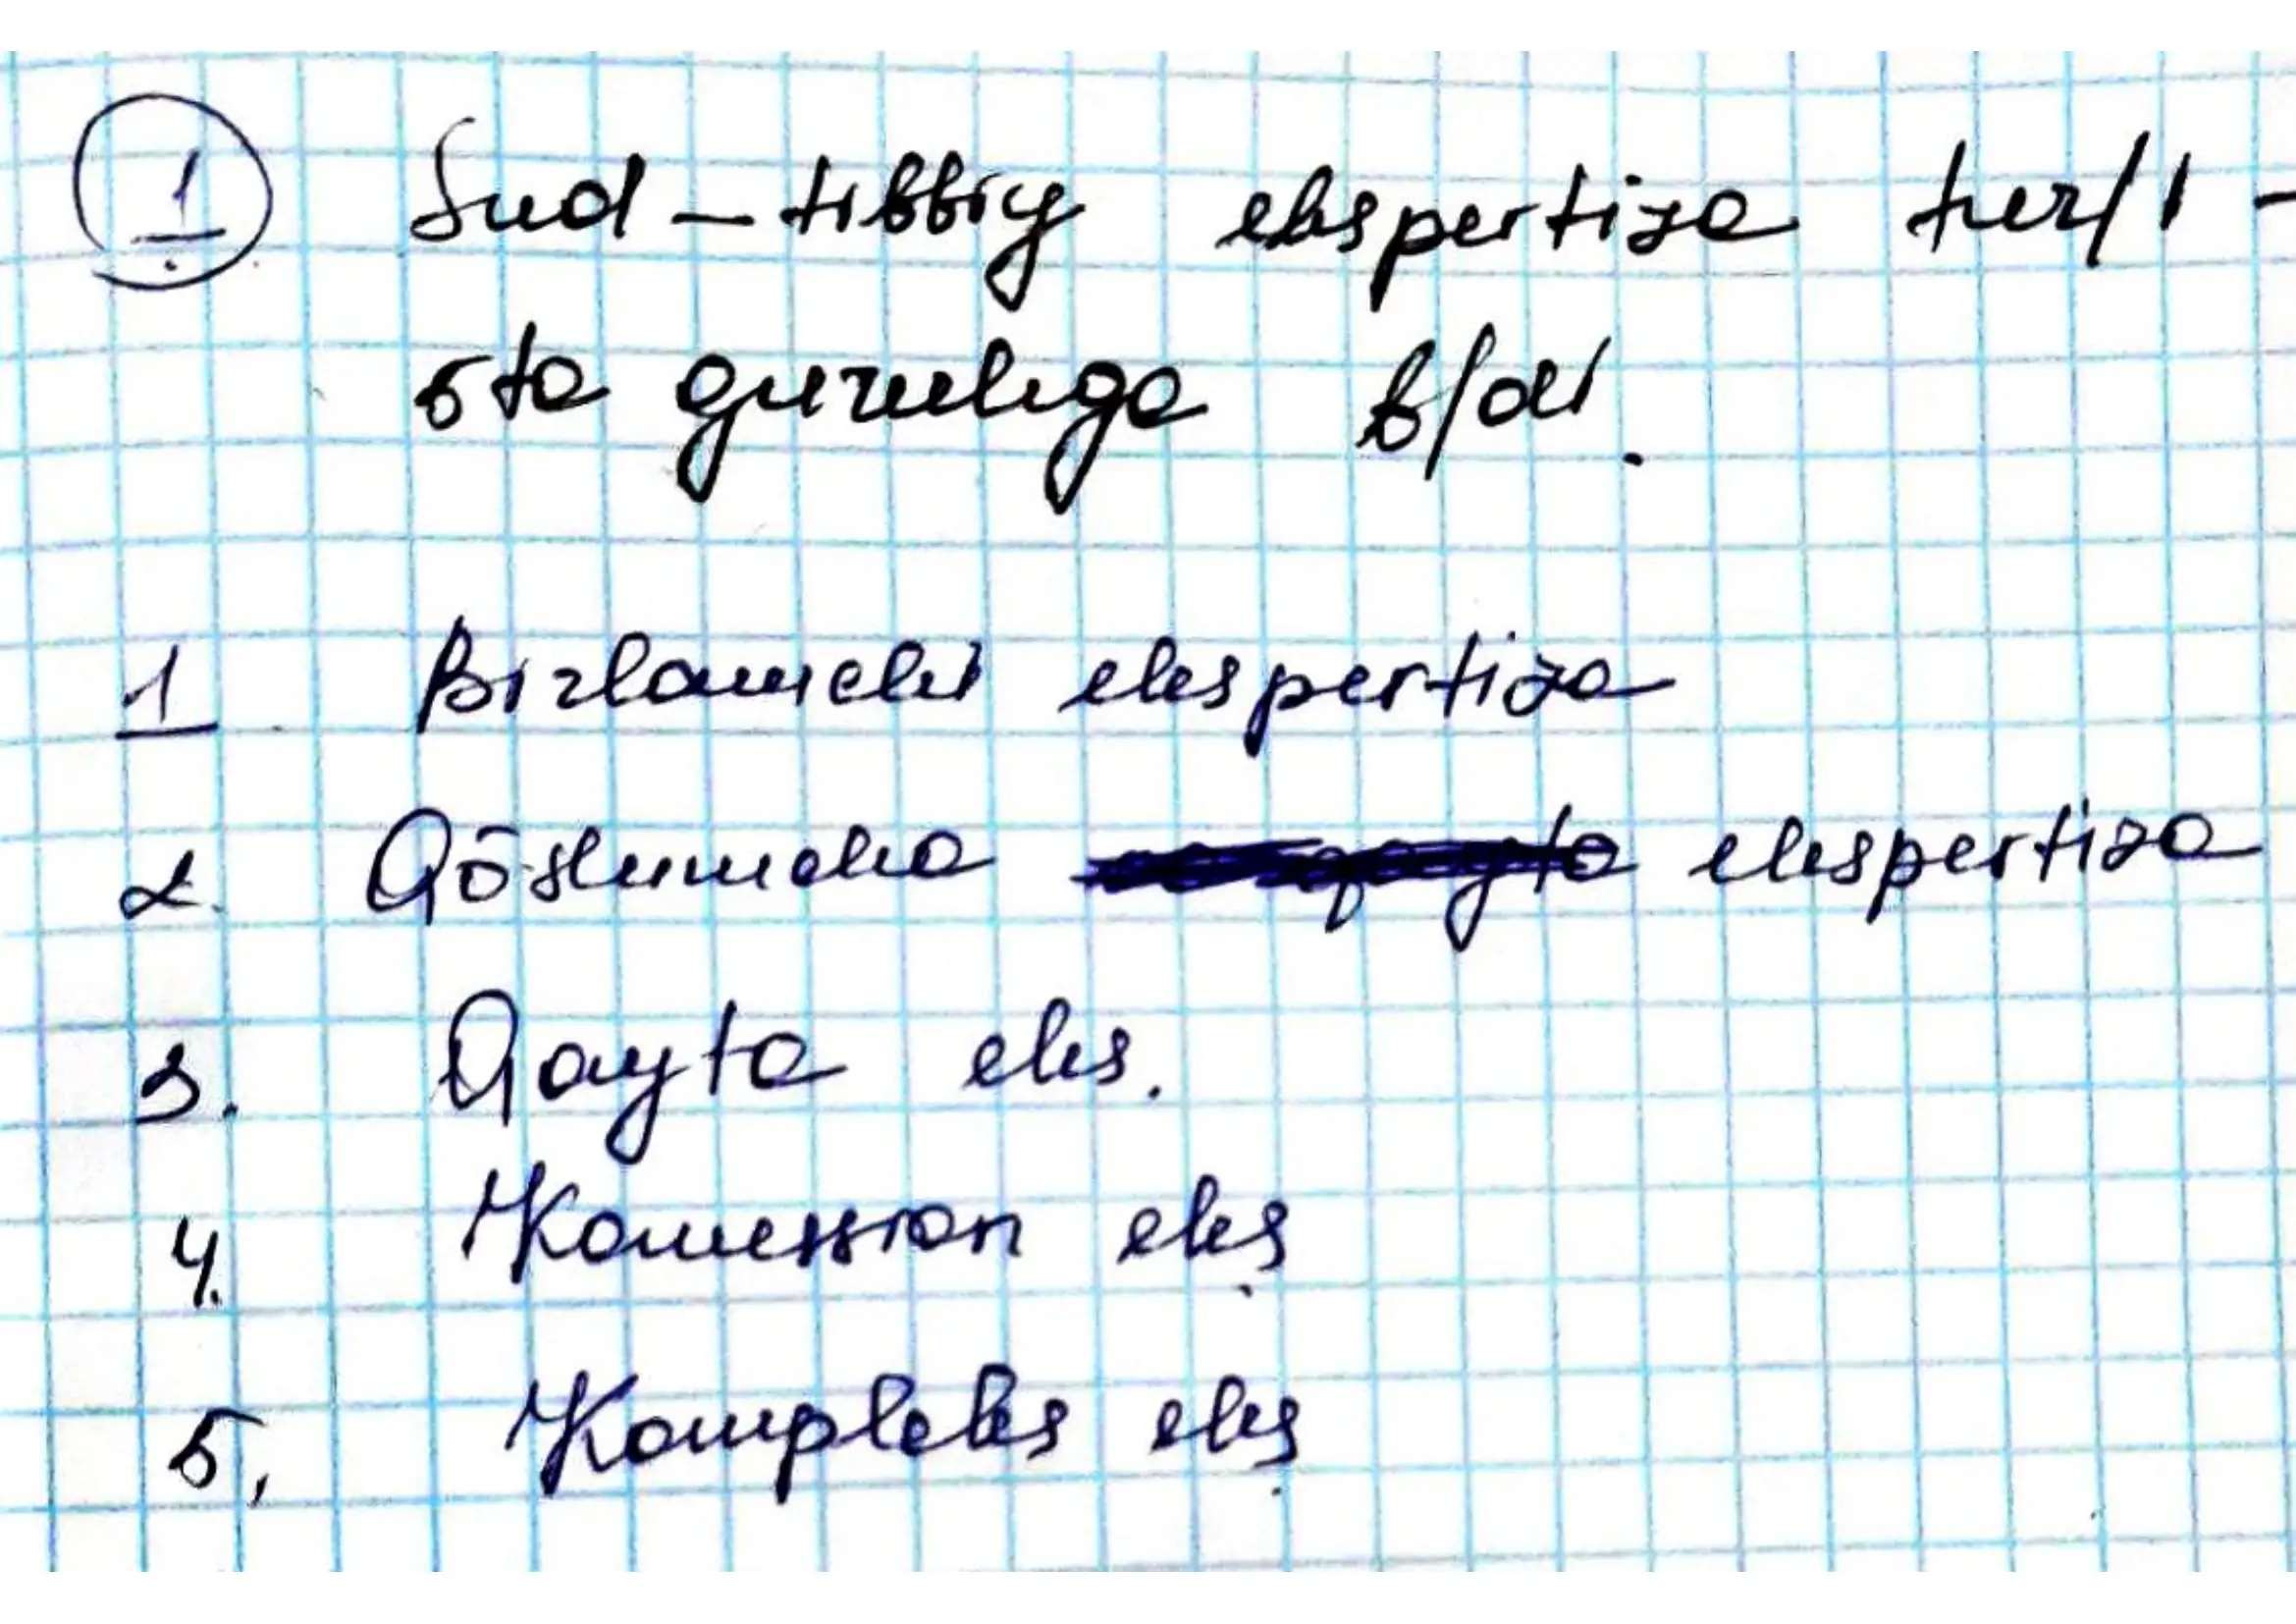 1. Sud-tibbiy ekspertiza tur/i -
5ta guruhga b/di.
1 Birlamchi ekspertiza
2. Qōshimcha ekspertiza
3. Qayta eks.
4. Komission eks.
5. Kompleks eks.